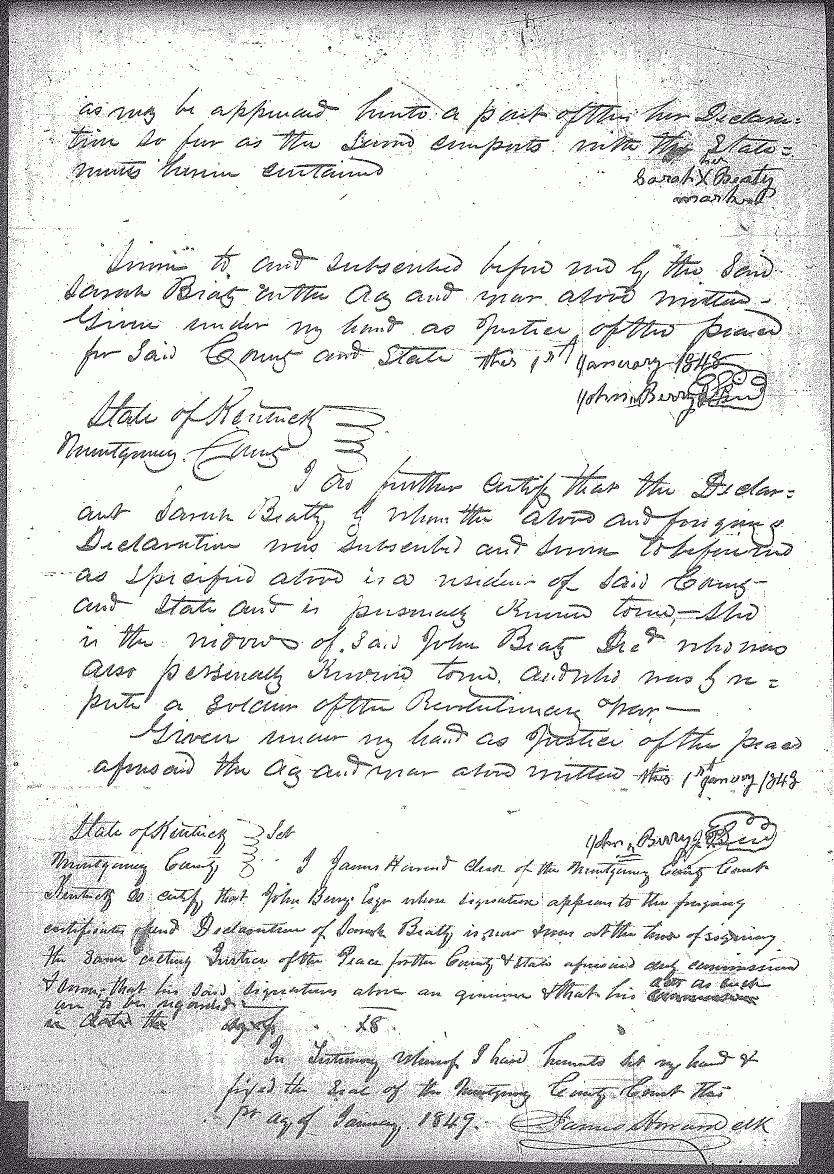 as may be appened hereto a part of this her Declara=
tion so far as the Same comports with the State=
ments herein contained
her
Sarah X Beaty
mark
Sworn to and subscribed before me by the Said
Sarah Beaty on the day and year above written -
Given under my hand as Justice of the peace
for Said County and State this 1st January 1848
John Berry
State of Kentucky
Montgomery County
I do further certify that the Declar=
ant Sarah Beatty by whom the above and foregoing
Declaration was subscribed and sworn to before me
as specified above is a resident of Said County
and State and is personally Known to me, - She
is the widow of Said John Beaty Decd who was
also personally Known to me. and who was by re=
pute a Soldier of the Revolutionary War, —
Given under my hand as Justice of the peace
aforesaid the day and year above written this 1st January 1848
John Berry
State of Kentucky Sct
Montgomery County I James Howard clerk of the Montgomery County Court
Kentucky do certify that John Berry Esqr whose signature appears to the foregoing
certificates and Declaration of Sarah Beatty is now & was at the time of signing
the same acting Justice of the Peace for the County & State aforesaid duly commission
& sworn, that his said signatures above are genuine & that his acts as such
are to be regarded
In Testimony whereof I have hereunto set my hand &
fixed the Seal of the Montgomery County Court this
1st day of January, 1849.
James Howard clk